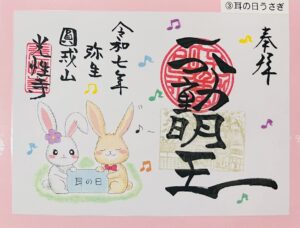 ③耳の日うさぎ
奉拝
不動明王
令和七年
弥生
圓戒山
光性寺
耳の日